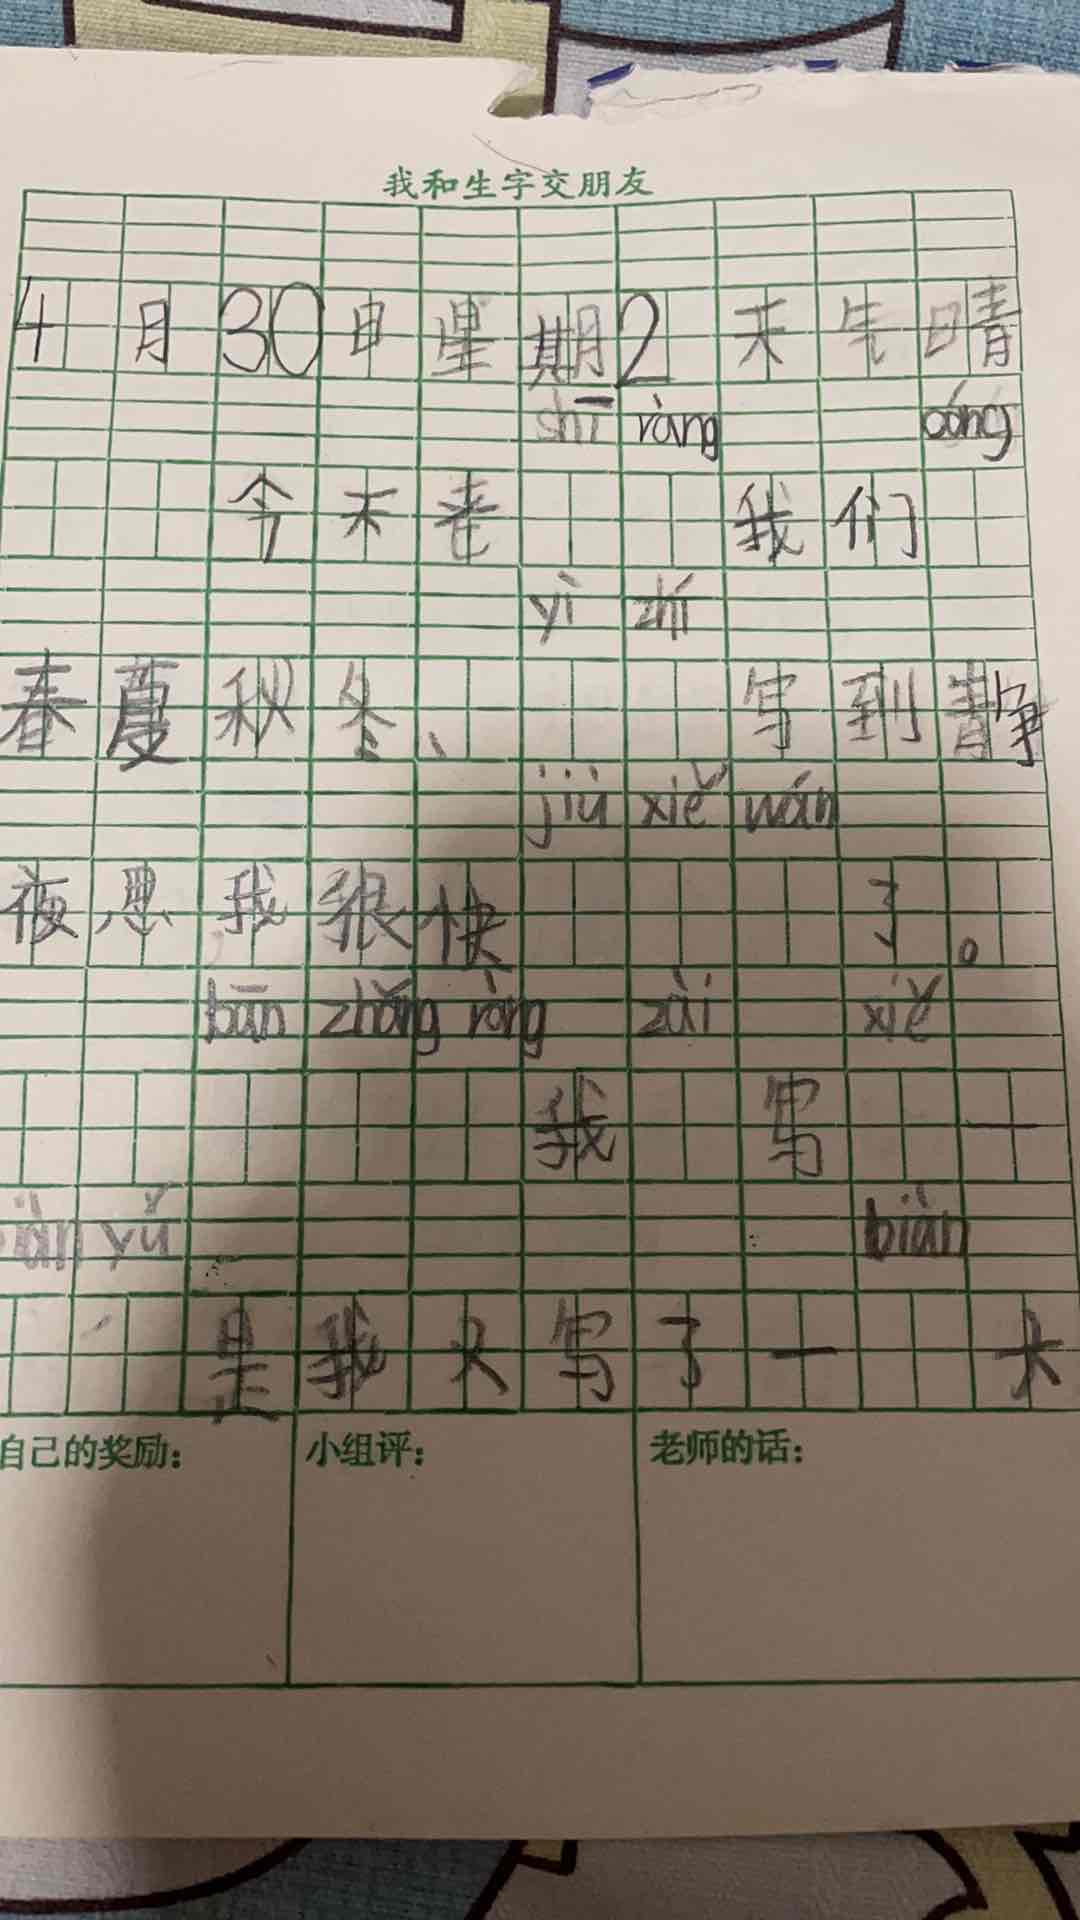 我和生字交朋友
4月30日星期2天气晴
shī ràng cóng
今天老 我们
yì zhí
春夏秋冬、 写到静
jiù xiě wán
夜思我很快 了。
bān zhǎng ràng zài xiě
我 写 一
biàn yǔ biàn
是我又写了一 大
自己的奖励:
小组评:
老师的话: